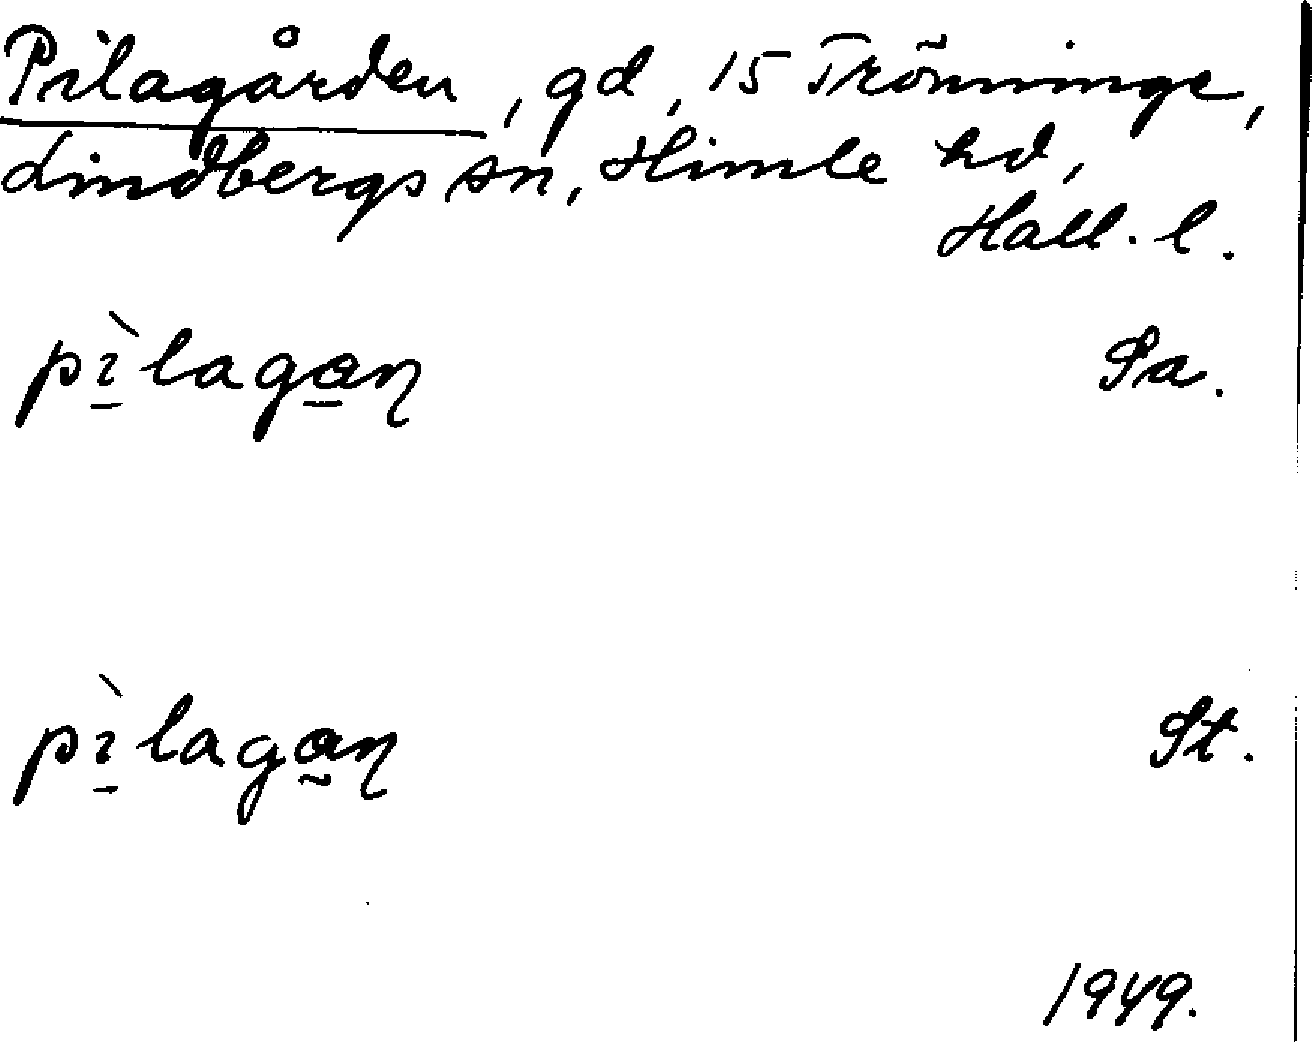 Pilagården, gd, 15 Trönninge,
Lindbergs sn, Himle hd,
Hall. l.
pìlagaɳ Sa.
pìlagaɳ St.
1949.